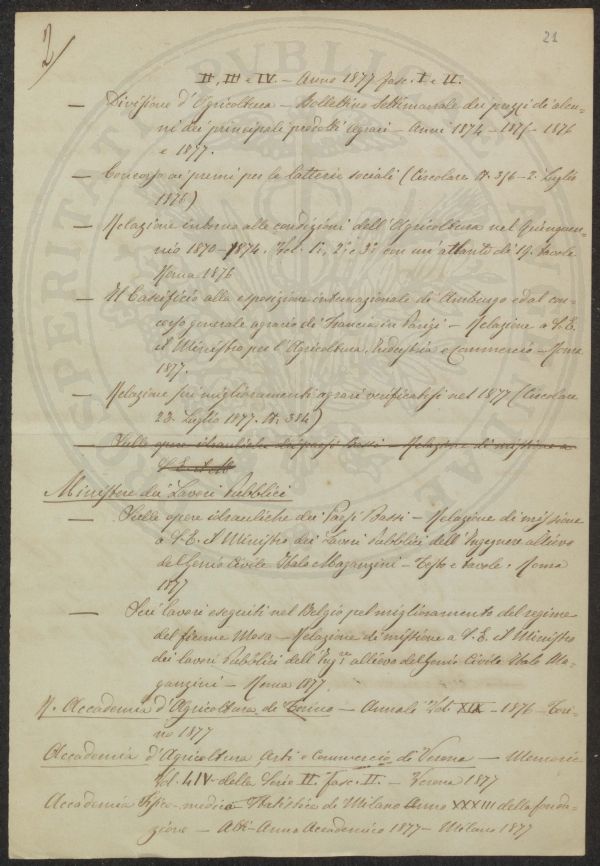 2/
21
II, III e IV. — Anno 1877 fasc. I e II.
— Divisione d'Agricoltura — Bollettino Settimanale dei prezzi di alcu-
ni dei principali prodotti agrari — Anni 1874 - 1875 - 1876
e 1877.
— Concorso ai premi per le latterie sociali (Circolare N. 356 - 2 Luglio
1876)
— Relazione intorno alle condizioni dell'Agricoltura nel Quinquen-
nio 1870-1874. Vol. 1°, 2° e 3° con un atlante di 19 tavole
Roma 1876
— Il Caseificio alla esposizione internazionale di Amburgo e dal con-
corso generale agrario di Francia in Parigi — Relazione a S. E.
il Ministro per l'Agricoltura, Industria e Commercio — Roma
1877.
— Relazione sui miglioramenti agrari verificatisi nel 1877 (Circolare
23 Luglio 1877. N. 384)
Sulle opere idrauliche dei paesi Bassi — Relazione di missione a
S. E. il M
Ministero dei Lavori Pubblici
— Sulle opere idrauliche dei Paesi Bassi — Relazione di missione
a S. E. il Ministro dei Lavori Pubblici dell'Ingegnere allievo
del Genio Civile Italo Maganzini — Testo e tavole. Roma
1877
— Sui lavori eseguiti nel Belgio pel miglioramento del regime
del fiume Mosa — Relazione di missione a S. E. il Ministro
dei lavori Pubblici dell'Ing.re allievo del Genio Civile Italo Ma-
ganzini — Roma 1877.
R. Accademia d'Agricoltura di Torino — Annali Vol. XIX — 1876 — Tori-
no 1877
Accademia d'Agricoltura Arti e Commercio di Verona — Memorie
Vol. LIV della Serie II. fasc. II. — Verona 1877
Accademia Fisio-medico-Statistica di Milano Anno XXXIII della fonda-
zione — Atti - Anno Accademico 1877 — Milano 1877